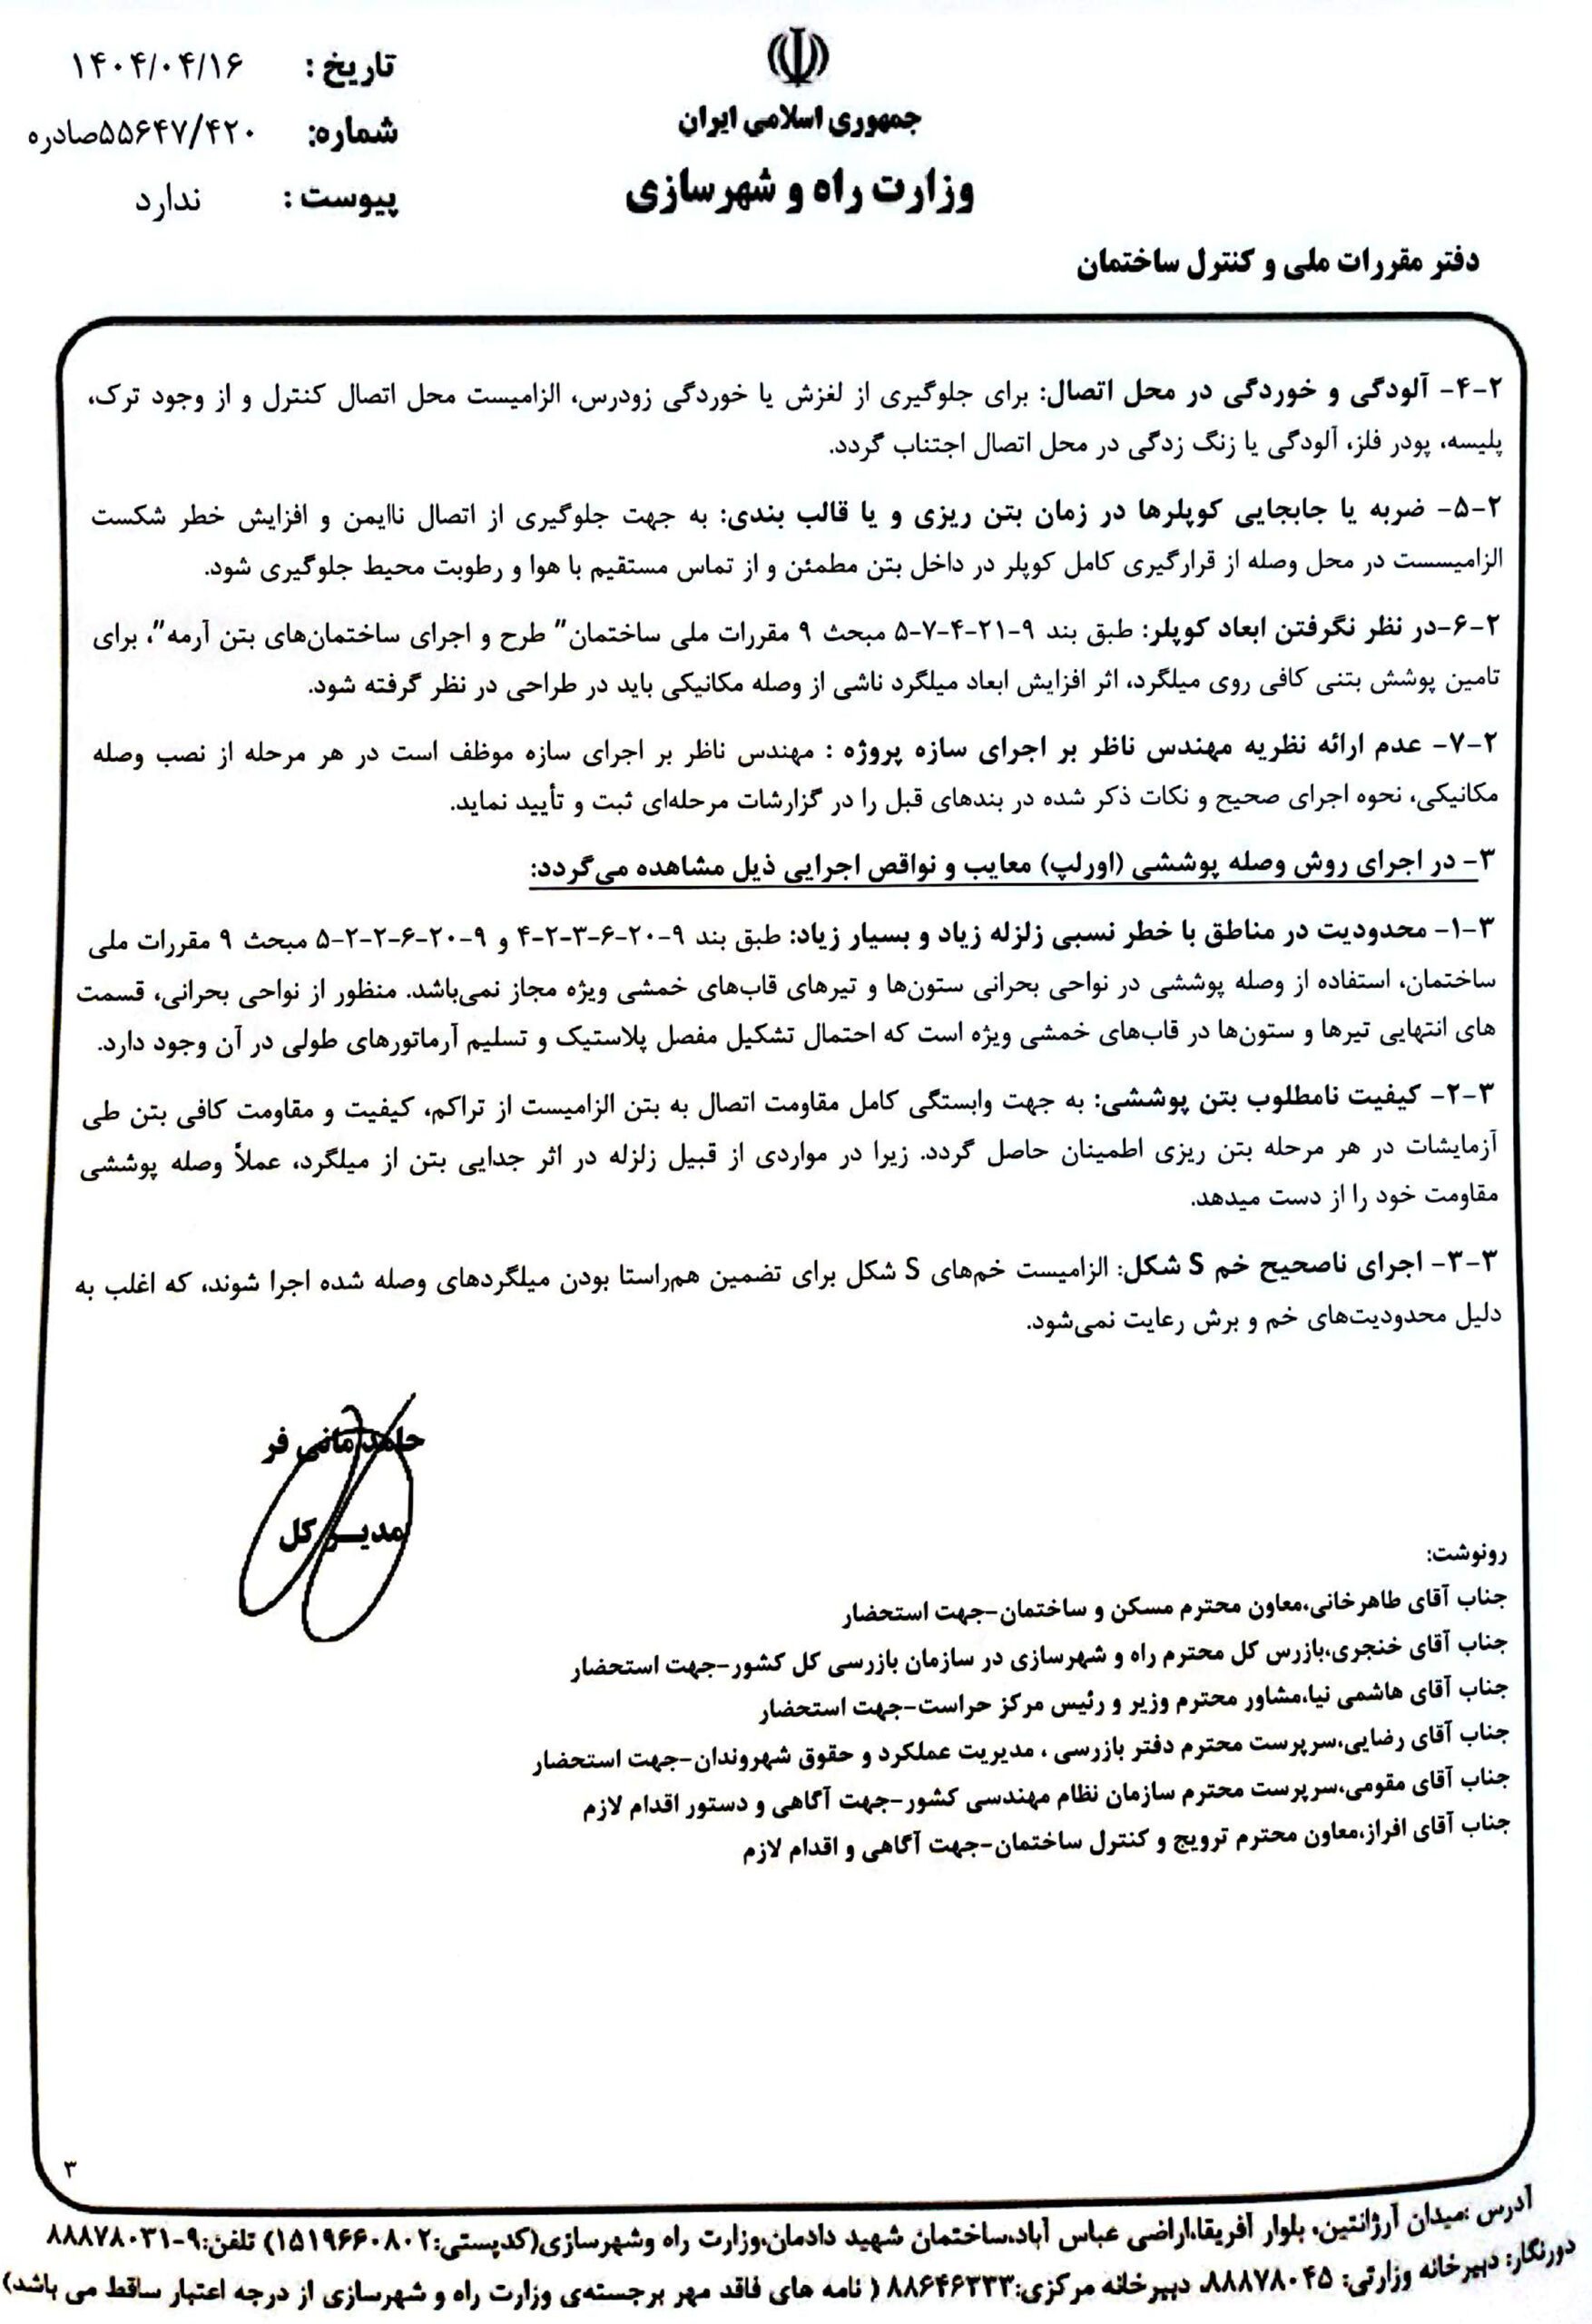 جمهوری اسلامی ایران
وزارت راه و شهرسازی
دفتر مقررات ملی و کنترل ساختمان
تاریخ : ۱۴۰۴/۰۴/۱۶
شماره: ۵۵۶۴۷/۴۲۰صادره
پیوست : ندارد
۲-۴- آلودگی و خوردگی در محل اتصال: برای جلوگیری از لغزش یا خوردگی زودرس، الزامیست محل اتصال کنترل و از وجود ترک،
پلیسه، پودر فلز، آلودگی یا زنگ زدگی در محل اتصال اجتناب گردد.
۲-۵- ضربه یا جابجایی کوپلرها در زمان بتن ریزی و یا قالب بندی: به جهت جلوگیری از اتصال ناایمن و افزایش خطر شکست
الزامیسست در محل وصله از قرارگیری کامل کوپلر در داخل بتن مطمئن و از تماس مستقیم با هوا و رطوبت محیط جلوگیری شود.
۲-۶-در نظر نگرفتن ابعاد کوپلر: طبق بند ۹-۲۱-۴-۷-۵ مبحث ۹ مقررات ملی ساختمان" طرح و اجرای ساختمان‌های بتن آرمه"، برای
تامین پوشش بتنی کافی روی میلگرد، اثر افزایش ابعاد میلگرد ناشی از وصله مکانیکی باید در طراحی در نظر گرفته شود.
۲-۷- عدم ارائه نظریه مهندس ناظر بر اجرای سازه پروژه : مهندس ناظر بر اجرای سازه موظف است در هر مرحله از نصب وصله
مکانیکی، نحوه اجرای صحیح و نکات ذکر شده در بندهای قبل را در گزارشات مرحله‌ای ثبت و تأیید نماید.
۳- در اجرای روش وصله پوششی (اورلپ) معایب و نواقص اجرایی ذیل مشاهده می‌گردد:
۳-۱- محدودیت در مناطق با خطر نسبی زلزله زیاد و بسیار زیاد: طبق بند ۹-۲۰-۶-۳-۲-۴ و ۹-۲۰-۶-۲-۲-۵ مبحث ۹ مقررات ملی
ساختمان، استفاده از وصله پوششی در نواحی بحرانی ستون‌ها و تیرهای قاب‌های خمشی ویژه مجاز نمی‌باشد. منظور از نواحی بحرانی، قسمت
های انتهایی تیرها و ستون‌ها در قاب‌های خمشی ویژه است که احتمال تشکیل مفصل پلاستیک و تسلیم آرماتورهای طولی در آن وجود دارد.
۳-۲- کیفیت نامطلوب بتن پوششی: به جهت وابستگی کامل مقاومت اتصال به بتن الزامیست از تراکم، کیفیت و مقاومت کافی بتن طی
آزمایشات در هر مرحله بتن ریزی اطمینان حاصل گردد. زیرا در مواردی از قبیل زلزله در اثر جدایی بتن از میلگرد، عملاً وصله پوششی
مقاومت خود را از دست میدهد.
۳-۳- اجرای ناصحیح خم S شکل: الزامیست خم‌های S شکل برای تضمین هم‌راستا بودن میلگردهای وصله شده اجرا شوند، که اغلب به
دلیل محدودیت‌های خم و برش رعایت نمی‌شود.
حامد مانی فر
مدیـر کل
رونوشت:
جناب آقای طاهرخانی،معاون محترم مسکن و ساختمان-جهت استحضار
جناب آقای خنجری،بازرس کل محترم راه و شهرسازی در سازمان بازرسی کل کشور-جهت استحضار
جناب آقای هاشمی نیا،مشاور محترم وزیر و رئیس مرکز حراست-جهت استحضار
جناب آقای رضایی،سرپرست محترم دفتر بازرسی ، مدیریت عملکرد و حقوق شهروندان-جهت استحضار
جناب آقای مقومی،سرپرست محترم سازمان نظام مهندسی کشور-جهت آگاهی و دستور اقدام لازم
جناب آقای افراز،معاون محترم ترویج و کنترل ساختمان-جهت آگاهی و اقدام لازم
۳
آدرس :میدان آرژانتین، بلوار آفریقا،اراضی عباس آباد،ساختمان شهید دادمان،وزارت راه وشهرسازی(کدپستی:۱۵۱۹۶۶۰۸۰۲) تلفن:۹-۸۸۸۷۸۰۳۱
دورنگار: دبیرخانه وزارتی: ۸۸۸۷۸۰۴۵، دبیرخانه مرکزی:۸۸۶۴۶۳۳۳ ( نامه های فاقد مهر برجسته‌ی وزارت راه و شهرسازی از درجه اعتبار ساقط می باشد)